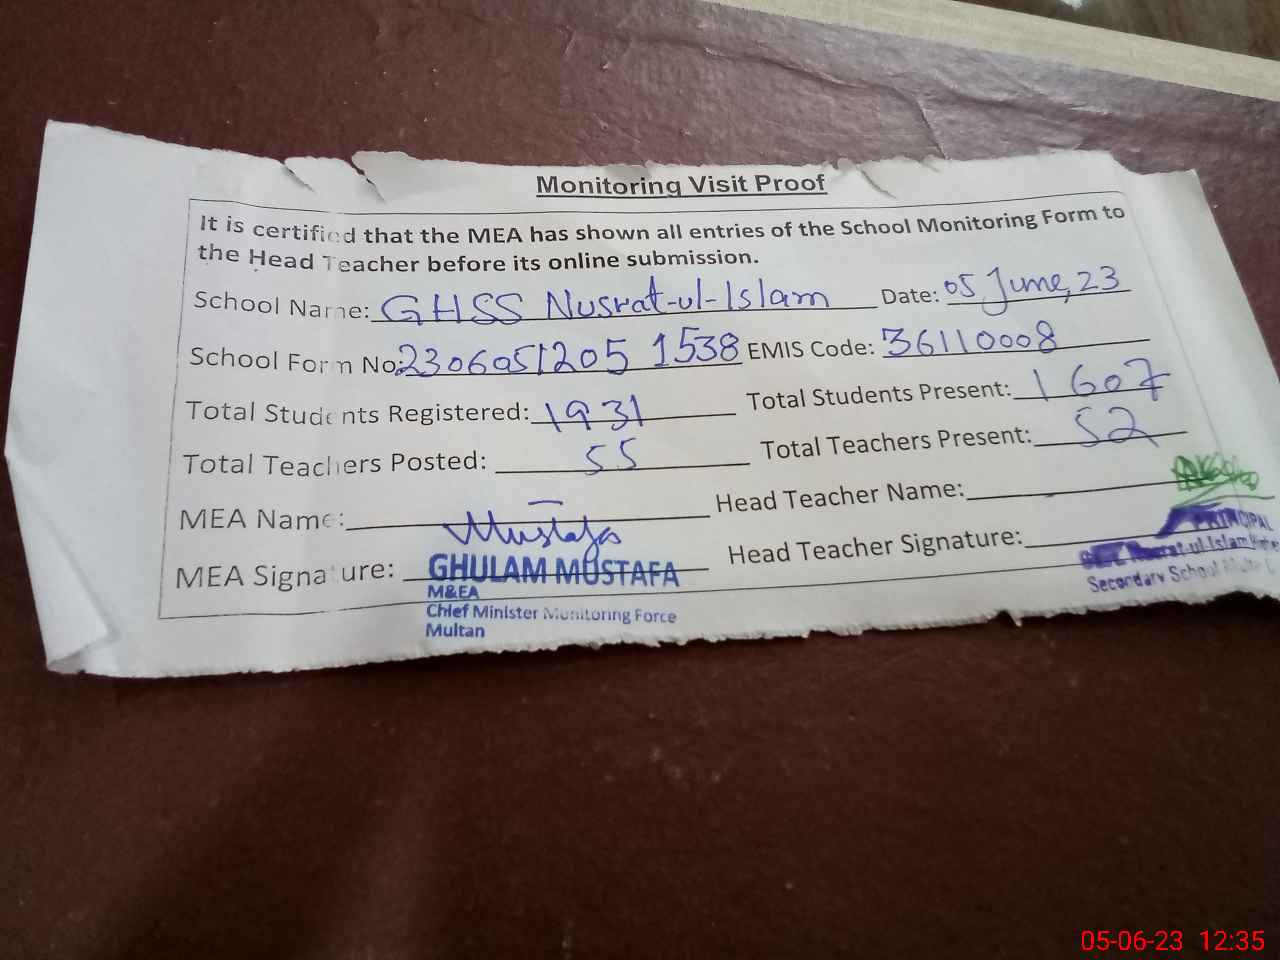 Monitoring Visit Proof
It is certified that the MEA has shown all entries of the School Monitoring Form to
the Head Teacher before its online submission.
School Name: GHSS Nusrat-ul-Islam Date: 05 June, 23
School Form No: 2306051205 1538 EMIS Code: 36110008
Total Students Registered: 1931 Total Students Present: 1607
Total Teachers Posted: 55 Total Teachers Present: 52
MEA Name: Head Teacher Name:
Mustafa
MEA Signature: Head Teacher Signature:
GHULAM MUSTAFA
M&EA
Chief Minister Monitoring Force
Multan
PRINCIPAL
Nusrat-ul-Islam
Secondary School
05-06-23 12:35